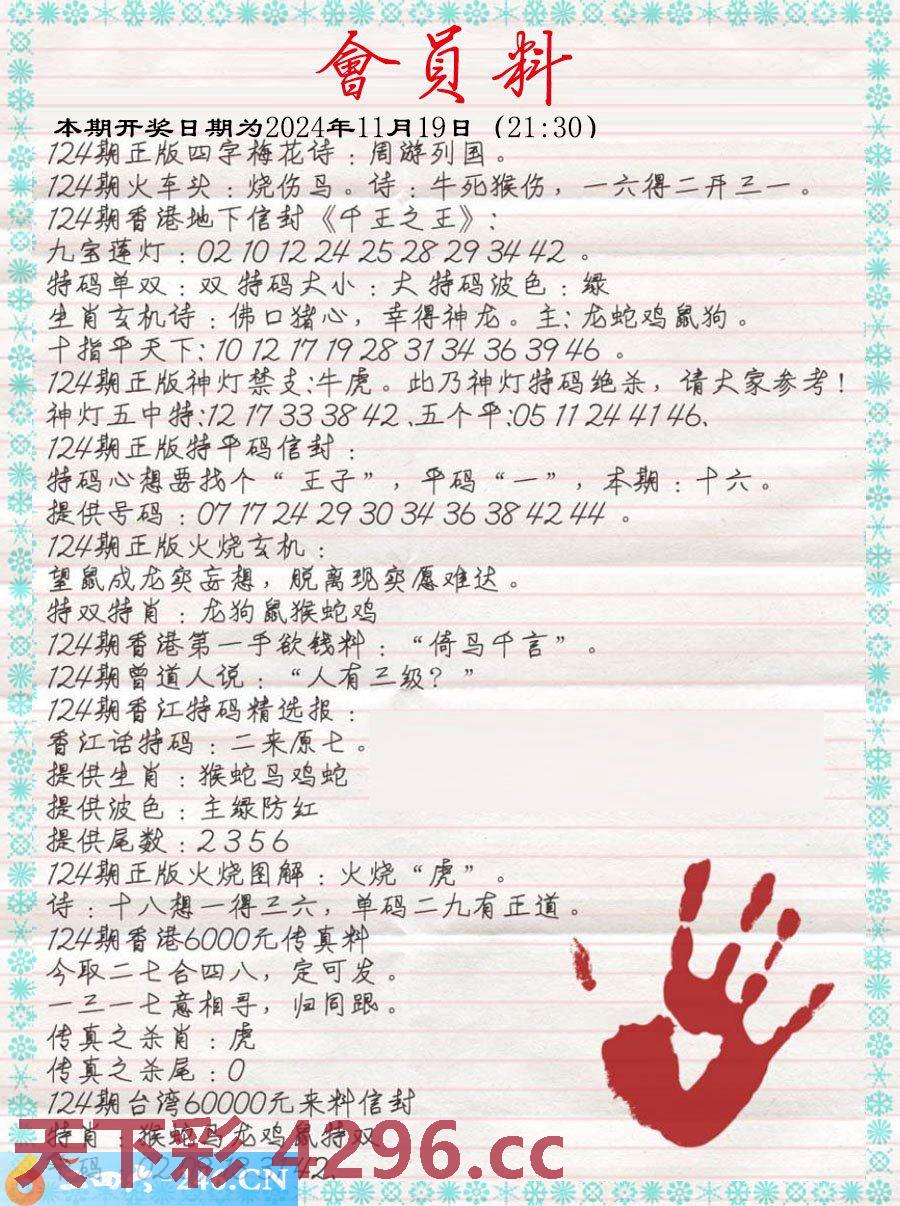 會員料
本期开奖日期为2024年11月19日（21:30）
124期正版四字梅花诗：周游列国。
124期火车头：烧伤鸟。诗：牛死猴伤，一六得二开三一。
124期香港地下信封《千王之王》：
九宝莲灯：02 10 12 24 25 28 29 34 42 。
特码单双：双 特码大小：大 特码波色：绿
生肖玄机诗：佛口猪心，幸得神龙。主：龙蛇鸡鼠狗。
十指平天下：10 12 17 19 28 31 34 36 39 46 。
124期正版神灯禁支：牛虎。此乃神灯特码绝杀，请大家参考！
神灯五中特：12 17 33 38 42 、五个平：05 11 24 41 46、
124期正版特平码信封：
特码心想要找个“ 王子”，平码“一”，本期：十六。
提供号码：07 17 24 29 30 34 36 38 42 44 。
124期正版火烧玄机：
望鼠成龙实妄想，脱离现实愿难达。
特双特肖：龙狗鼠猴蛇鸡
124期香港第一手欲钱料：“倚鸟千言”。
124期曾道人说：“人有三级？”
124期香江特码精选报：
香江话特码：二来原七。
提供生肖：猴蛇鸟鸡蛇
提供波色：主绿防红
提供尾数：2 3 5 6
124期正版火烧图解：火烧“虎”。
诗：十八想一得三六，单码二九有正道。
124期香港6000元传真料
今取二七合四八，定可发。
一三一七意相寻，归同跟。
传真之杀肖：虎
传真之杀尾：0
124期台湾60000元来料信封
特肖：猴蛇马龙鸡鼠特双
42、
天下彩 4296.cc
246.CN